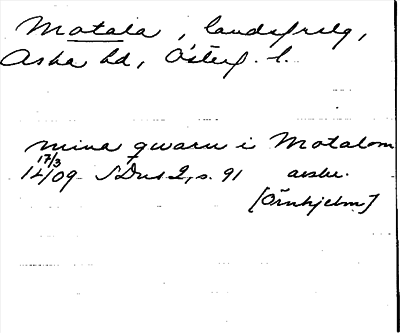 Motala, landsfrslg,
Aska hd, Österg. l.
mina qwarn i Motalom
17/3
1409 SDns 2, s. 91 avskr.
[Örnhjelm]